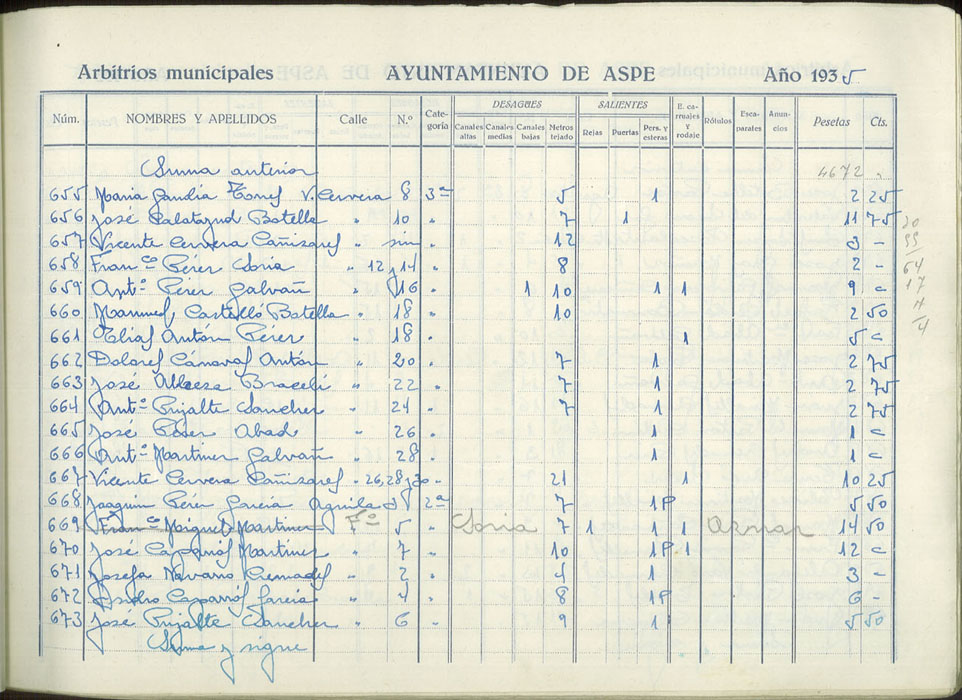 Arbitrios municipales AYUNTAMIENTO DE ASPE Año 1935
Núm. NOMBRES Y APELLIDOS Calle N.º Categoría DESAGÜES Canales altas Canales medias Canales bajas Metros triado SALIENTES Rejas Puertas Pers. y esteras E. carruajes y rodaje Rótulos Escaparates Anuncios Pesetas Cts.
Suma anterior 4672 "
655 Maria Gandia Tomás V. Cervera 8 3ª 5 1 2 25
656 José Calatayud Botella " 10 " 7 1 11 75
657 Vicente Cervera Cañizares " sin " 12 3 -
658 Franco Pérez Soria " 12 y 14 " 8 2 -
659 Antº Pérez Galvañ " 16 " 1 10 1 1 9 c
660 Manuel Castelló Botella " 18 " 10 2 50
661 Elias Antón Pérez " 18 " 1 5 c
662 Dolores Cánovas Antón " 20 " 7 1 2 75
663 José Alberza Braceli " 22 " 7 1 2 75
664 Antº Prijalte Sanchez " 24 " 7 1 2 75
665 José Pérez Abad " 26 " 1 1 c
666 Antº Martinez Galvañ " 28 " 1 1 c
667 Vicente Cervera Cañizares " 26, 28 y 30 " 21 1 10 25
668 Joaquin Pérez Garcia Aguila 2ª 7 1P 5 50
669 Franco Martinez Fº 5 " Soria 7 1 1 1 Aznar 14 50
670 José Caparrós Martinez " 7 " 10 1P 1 12 c
671 Josefa Navarro Cremades " 2 " 4 1 3 -
672 Isidro Caparrós Garcia " 4 " 8 1P 6 -
673 José Prijalte Sancher " 6 " 9 1 5 50
Suma y sigue